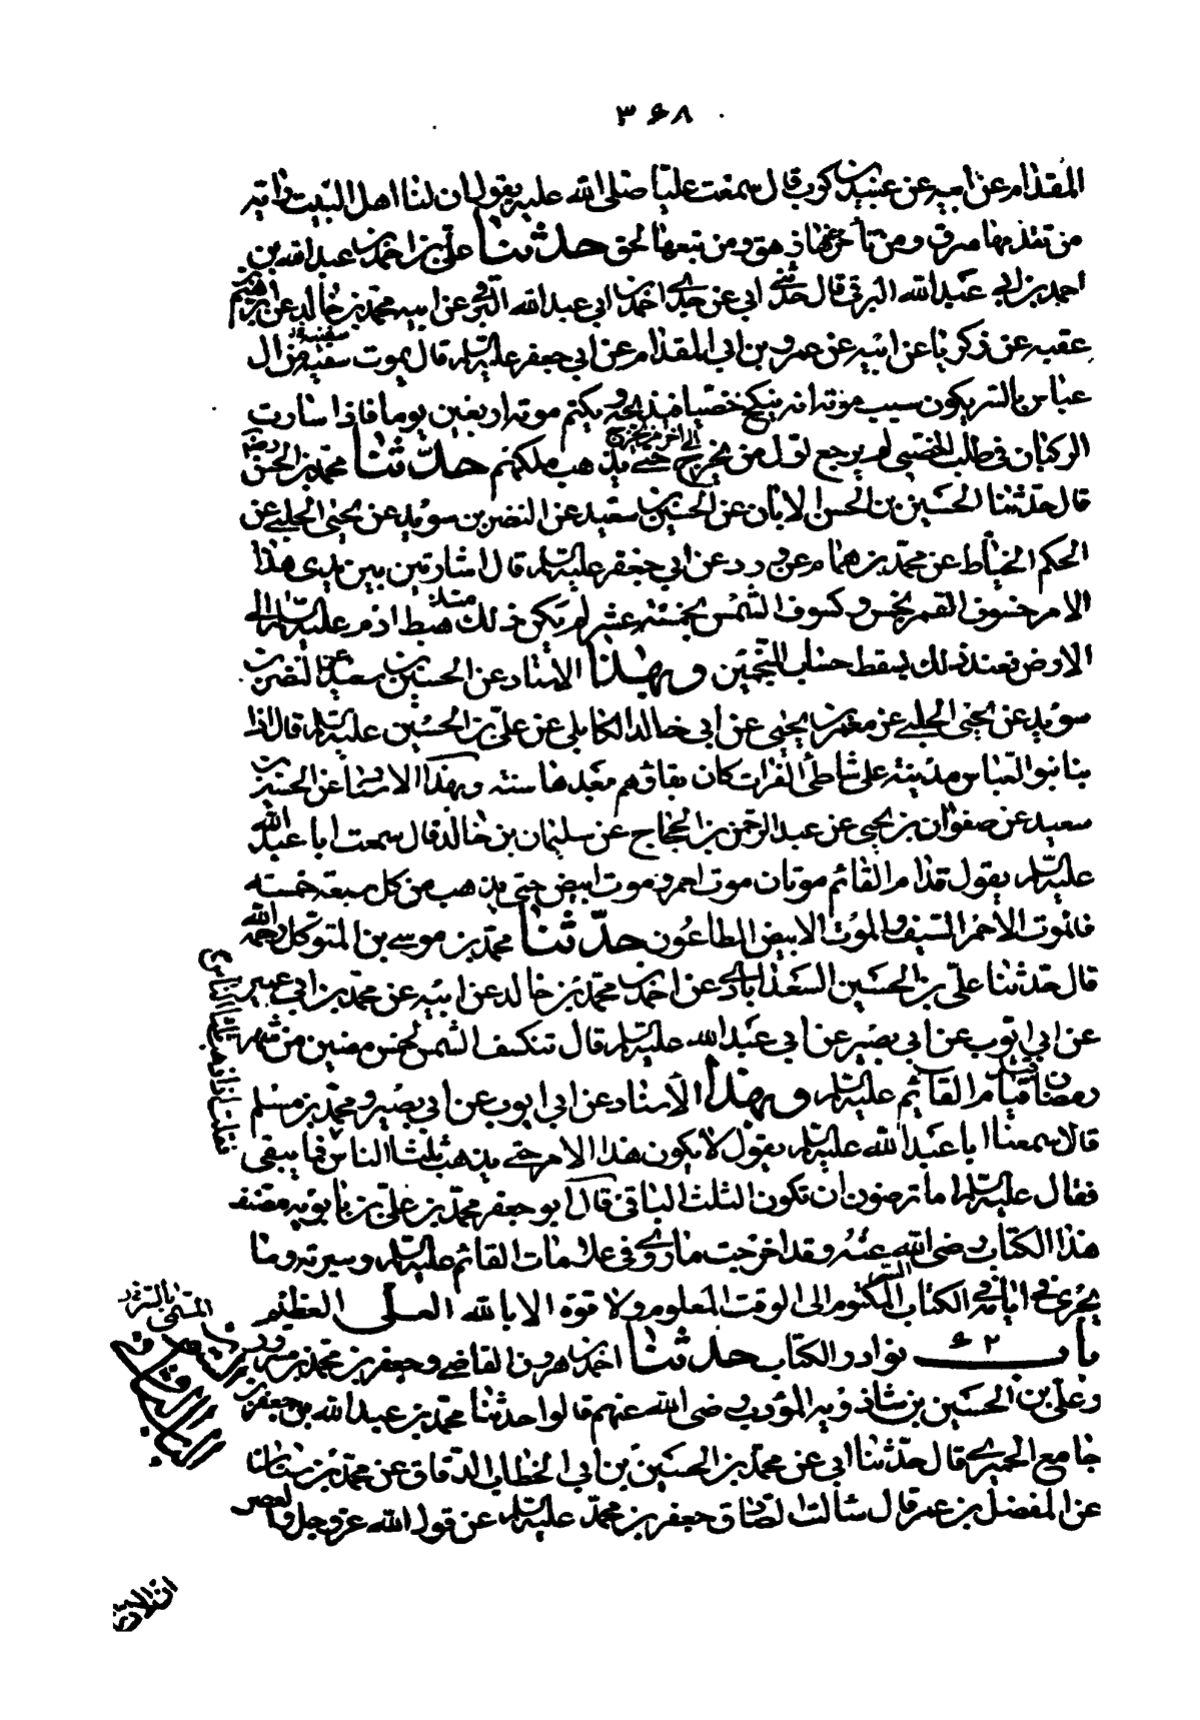 ۳۶۸
المقدام عن ابيه عن عبيد بن كرب قال سمعت عليا صلى الله عليه يقول ان لنا اهل البيت راية
من تقدمها مرق ومن تأخر عنها زهق ومن تبعها لحق حدثنا على بن احمد بن عبد الله بن
احمد بن ابى عبد الله البرقى قال حدثنى ابى عن جدى احمد بن ابى عبد الله البرقى عن ابيه محمد بن خالد عن ابرهيم بن
عقبه عن ذكريا عن ابيه عن عمرو بن ابى المقدام عن ابى جعفر عليه السلام قال يموت سفيه من ال
عباس بالسر يكون سبب موته انه ينكح خصيا فيذبحه ويكتم موته اربعين يوما فاذا سارت
الركبان فى طلب الخصى لم يرجع اول من يخرج حتى يذهب ملكهم حدثنا محمد بن الحسن رض
قال حدثنا الحسين بن الحسن الابان عن الحسين بن سعيد عن النضر بن سويد عن يحيى الحلبى عن
الحكم الخياط عن محمد بن همام عن ورد عن ابى جعفر عليه السلام قال اشارتين بين يدى هذا
الامر خسوف القمر بخمس وكسوف الشمس بخمسة عشر لم يكن ذلك منذ هبط ادم عليه السلام الى
الارض فعند ذلك يسقط حساب المنجمين وبهذا الاسناد عن الحسين بن سعيد عن النضر بن
سويد عن يحيى الحلبى عن معمر بن يحيى عن ابى خالد الكابلى عن على بن الحسين عليه السلام قال اذا
بنا بنو العباس مدينة على شاطئ الفرات كان بقاؤهم بعدها سنة وبهذا الاسناد عن الحسين بن
سعيد عن صفوان بن يحيى عن عبد الرحمن بن الحجاج عن سليمان بن خالد قال سمعت ابا عبد الله
عليه السلام يقول قدام القائم موتان موت احمر وموت ابيض حتى يذهب من كل سبعة خمسه
فالموت الاحمر السيف والموت الابيض الطاعون حدثنا محمد بن موسى بن المتوكل رحمه الله
قال حدثنا على بن الحسين السعدابادى عن احمد بن محمد بن خالد عن ابيه عن محمد بن ابى عمير
عن ابى ايوب عن ابى بصير عن ابى عبد الله عليه السلام قال تنكسف الشمس لخمس مضين من شهر
رمضان قبل قيام القائم عليه السلام وبهذا الاسناد عن ابى ايوب عن ابى بصير ومحمد بن مسلم
قالا سمعنا ابا عبد الله عليه السلام يقول لا يكون هذا الامر حتى يذهب ثلثا الناس فما يبقى
فقال عليه السلام اما ترضون ان تكون الثلث الباقى قال ابو جعفر محمد بن على بن بابويه مصنف
هذا الكتاب رضى الله عنه وقد اخرجت ما روى فى علامات القائم عليه السلام وسيرته وما
يجرى فى ايامه فى الكتاب السر المكتوم الى الوقت المعلوم ولا قوة الا بالله العلى العظيم
باب ۶۲ نوادر الكتاب حدثنا احمد بن هرون القاضى وجعفر بن محمد بن مسرور
وعلى بن الحسين بن شاذويه المؤدب رضى الله عنهم قالوا حدثنا محمد بن عبد الله بن جعفر بن
جامع الحميرى قال حدثنا ابى عن محمد بن الحسين بن ابى الخطاب الدقاق عن محمد بن سنان
عن المفضل بن عمر قال سألت الصادق جعفر بن محمد عليه السلام عن قول الله عز وجل والعصر
فقلت اذا ذهب ثلثا الناس
ان الانسان